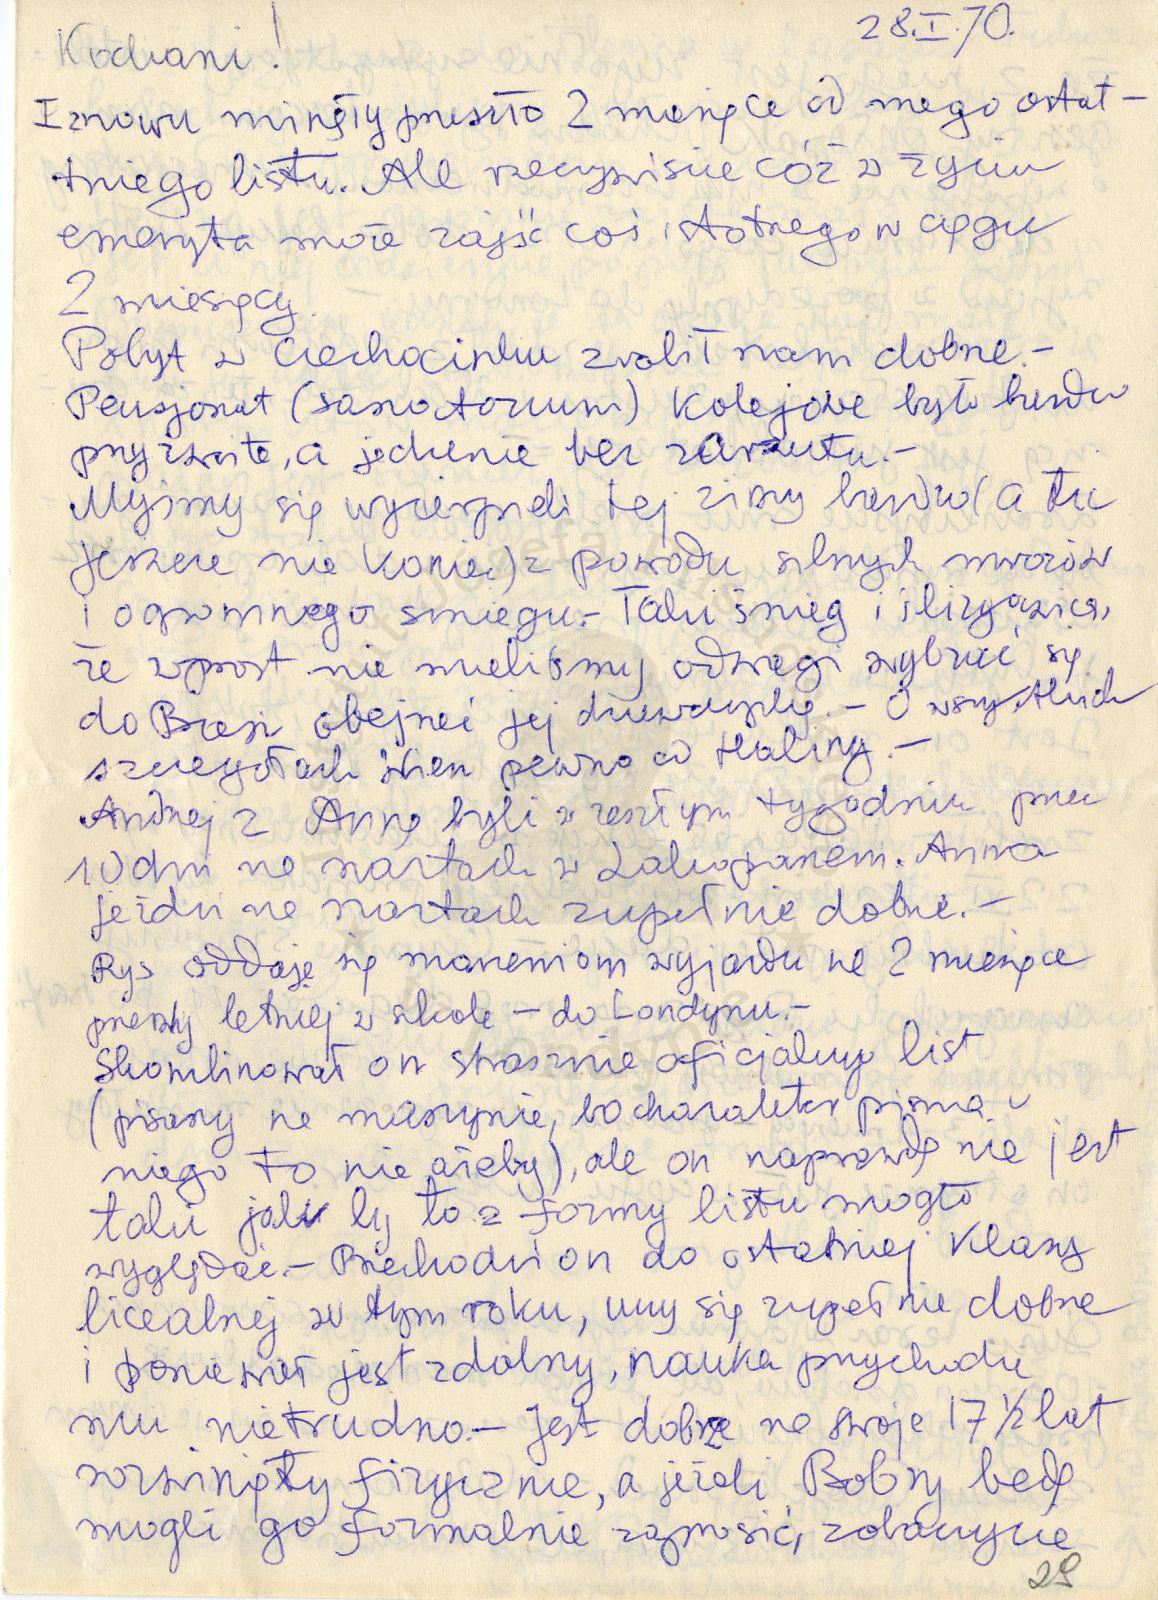 28.I.70.
Kochani!
I znowu minęły przeszło 2 miesiące od mego ostat-
tniego listu. Ale rzeczywiście cóż w życiu
emeryta może zajść coś istotnego w ciągu
2 miesięcy.
Pobyt w Ciechocinku zrobił nam dobrze.-
Pensjonat (sanatorium) Kolejowe było bardzo
przyzwoite, a jedzenie bez zarzutu.-
Myśmy się wycierpieli tej zimy bardzo (a tu
jeszcze nie koniec) z powodu silnych mrozów
i ogromnego śniegu.- Taki śnieg i ślizgawica,
że wprost nie mieliśmy odwagi wybrać się
do Brzezin obejrzeć jej. - O wszystkich
szczegółach wiem pewno od Haliny.-
Andrzej z Anną byli w zeszłym tygodniu przez
10 dni na nartach w Zakopanem. Anna
jeździ na nartach zupełnie dobrze.-
Ryś oddaje się marzeniom wyjazdu na 2 miesiące
przerwy letniej w szkole - do Londynu.-
Skombinował on strasznie oficjalny list
(pisany na maszynie, bo charakter pisma u
niego to nie ażeby), ale on naprawdę nie jest
taki jak by to z formy listu mogło
wyglądać.- Przechodzi on do ostatniej klasy
licealnej w tym roku, uczy się zupełnie dobrze
i ponieważ jest zdolny, nauka przychodzi
mu nietrudno.- Jest dobrze na swoje 17 1/2 lat
rozwinięty fizycznie, a jeżeli Bobry będą
mogli go formalnie zaprosić, zobaczycie
29